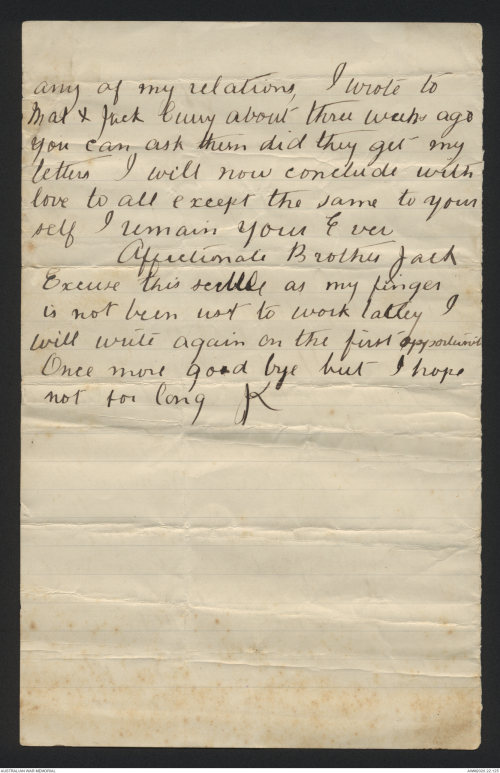 any of my relations, I wrote to
Mat & Jack Curry about three weeks ago
you can ask them did they get my
letters I will now conclude with
love to all except the same to your
self I remain your Ever
Affectionate Brother Jack
Excuse this as my finger
is not been ust to work latley I
will write again on the first opportunity
Once more good bye but I hope
not for long JK
AUSTRALIAN WAR MEMORIAL